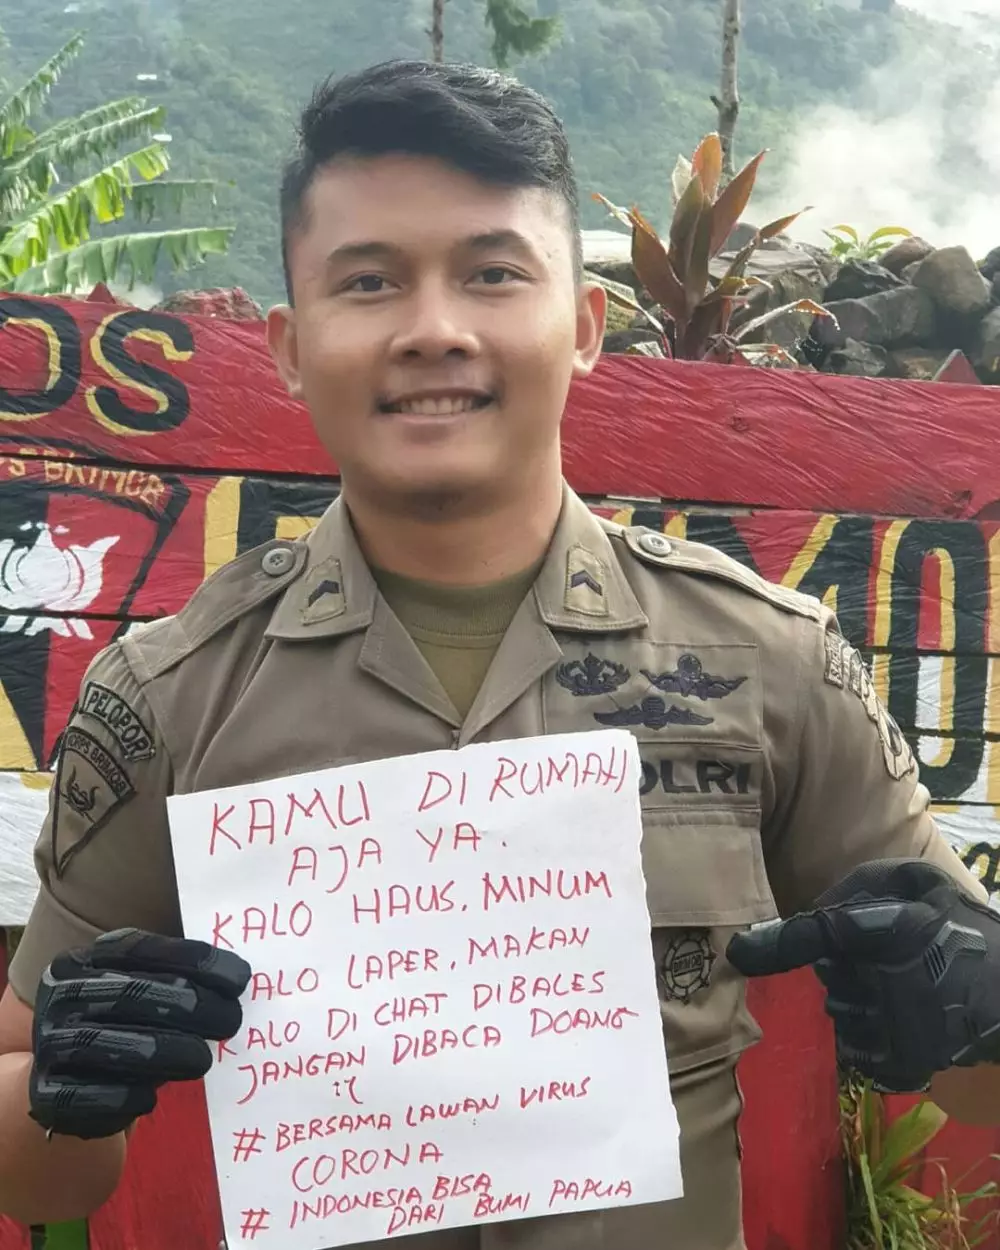 OS
BRIMOB
PELOPOR
KORPS BRIMOB
POLRI
BRIMOB
KAMU DI RUMAH
AJA YA.
KALO HAUS, MINUM
KALO LAPER, MAKAN
KALO DI CHAT DIBALES
JANGAN DIBACA DOANG
:(
# BERSAMA LAWAN VIRUS
CORONA
# INDONESIA BISA
DARI BUMI PAPUA